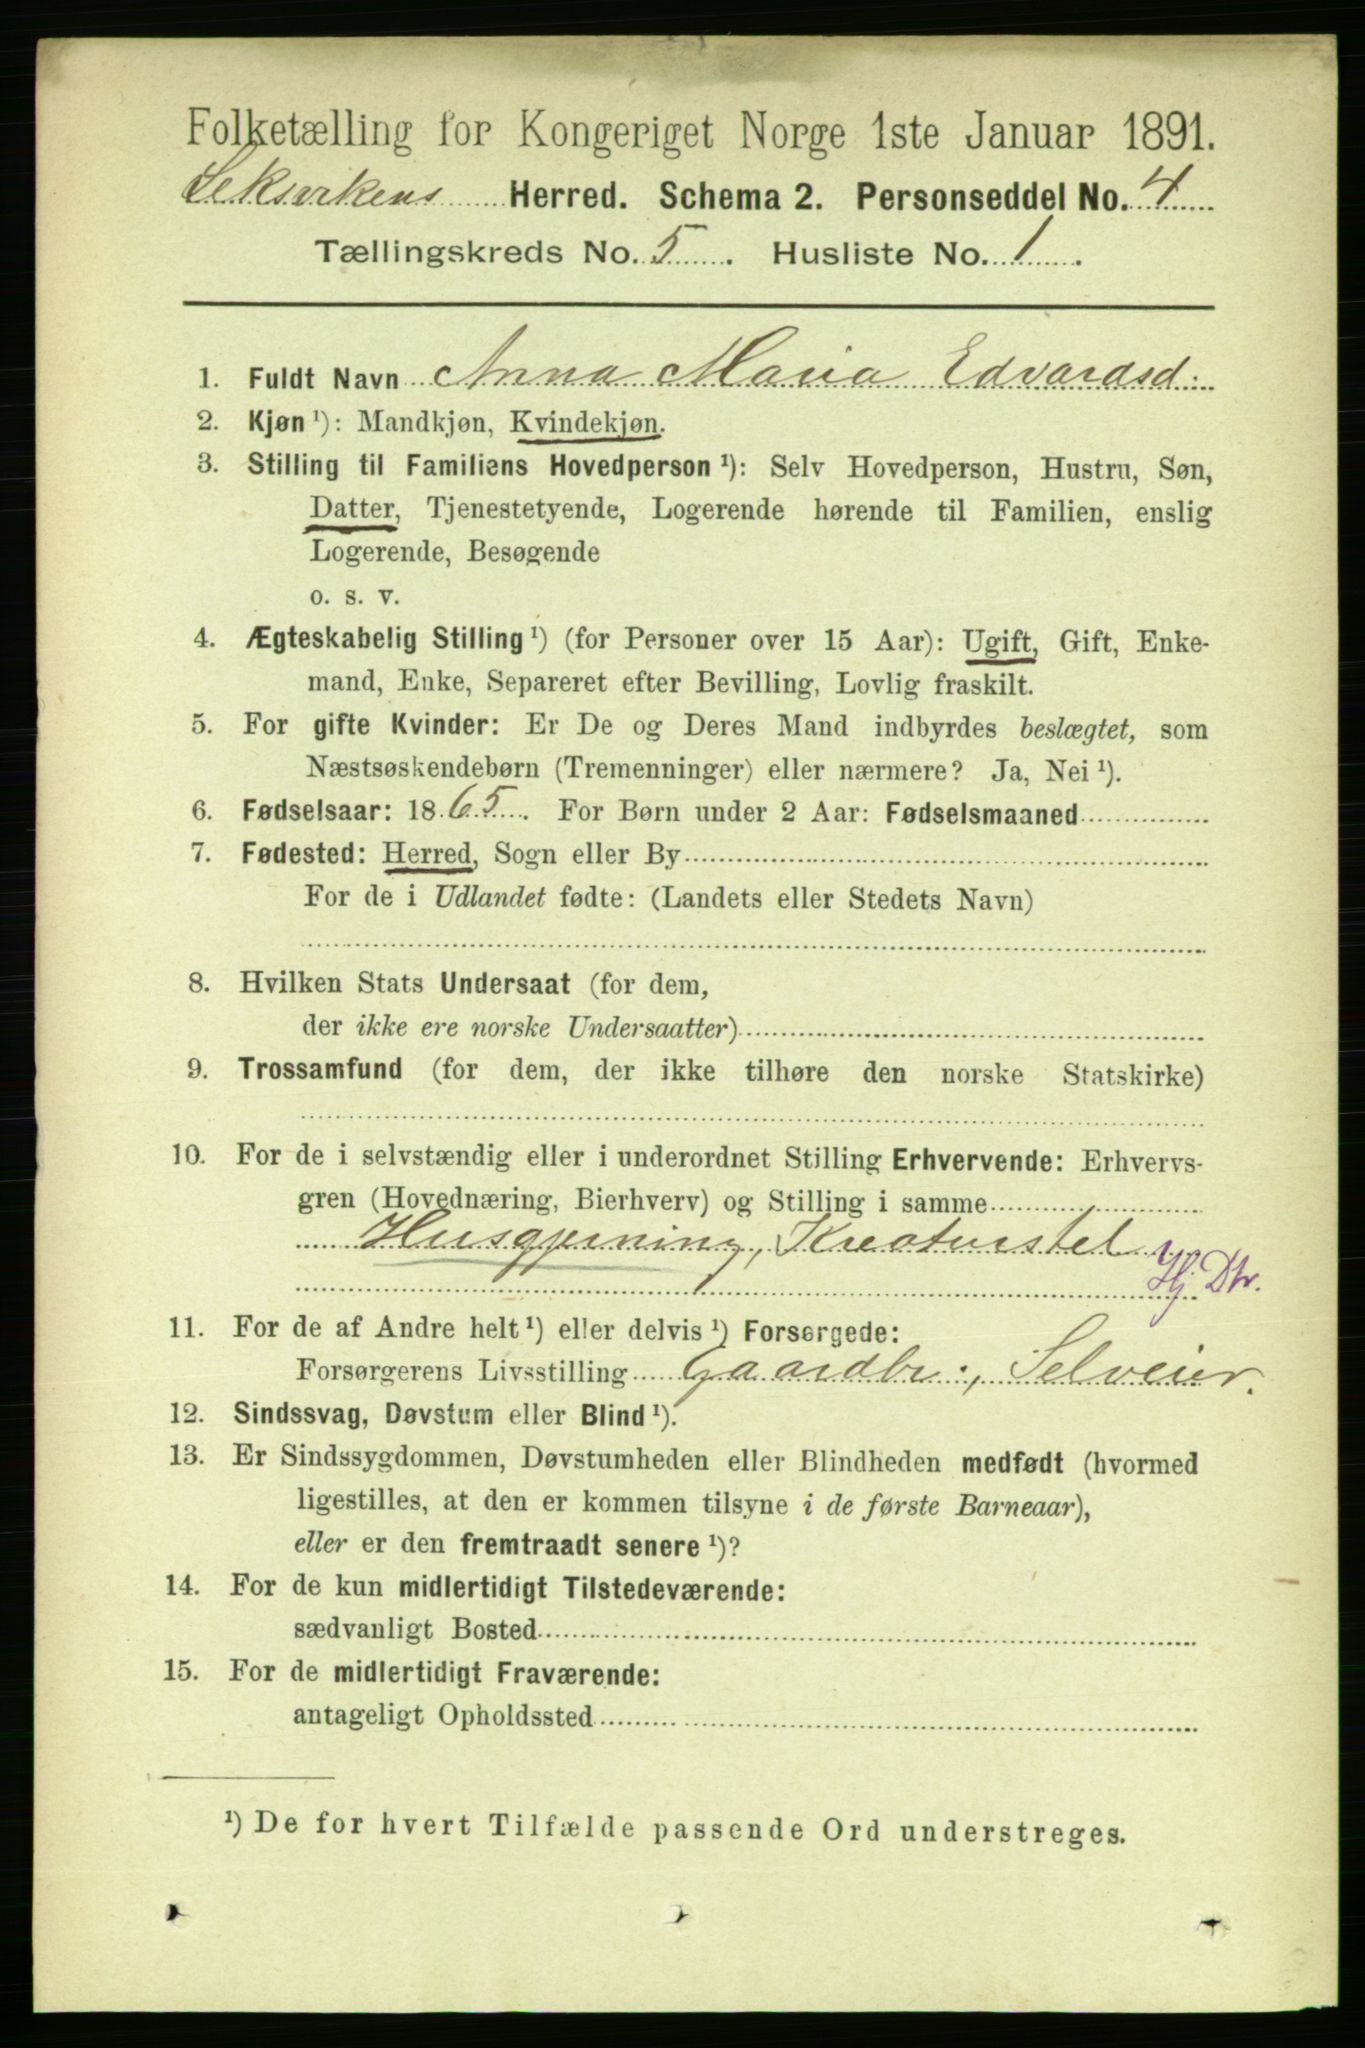 Folketælling for Kongeriget Norge 1ste Januar 1891.
Leksvikens Herred. Schema 2. Personseddel No. 4
Tællingskreds No. 5. Husliste No. 1.
1. Fuldt Navn Anna Maria Edvardsd.
2. Kjøn ¹): Mandkjøn, Kvindekjøn.
3. Stilling til Familiens Hovedperson ¹): Selv Hovedperson, Hustru, Søn,
Datter, Tjenestetyende, Logerende hørende til Familien, enslig
Logerende, Besøgende
o. s. v.
4. Ægteskabelig Stilling ¹) (for Personer over 15 Aar): Ugift, Gift, Enke-
mand, Enke, Separeret efter Bevilling, Lovlig fraskilt.
5. For gifte Kvinder: Er De og Deres Mand indbyrdes beslægtet, som
Næstsøskendebørn (Tremenninger) eller nærmere? Ja, Nei ¹).
6. Fødselsaar: 1865. For Børn under 2 Aar: Fødselsmaaned
7. Fødested: Herred, Sogn eller By
For de i Udlandet fødte: (Landets eller Stedets Navn)
8. Hvilken Stats Undersaat (for dem,
der ikke ere norske Undersaatter)
9. Trossamfund (for dem, der ikke tilhøre den norske Statskirke)
10. For de i selvstændig eller i underordnet Stilling Erhvervende: Erhvervs-
gren (Hovednæring, Bierhverv) og Stilling i samme
Husgjerning, Kreaturstel
Hj. Dtr.
11. For de af Andre helt ¹) eller delvis ¹) Forsørgede:
Forsørgerens Livsstilling Gaardbr:, Selveier.
12. Sindssvag, Døvstum eller Blind ¹).
13. Er Sindssygdommen, Døvstumheden eller Blindheden medfødt (hvormed
ligestilles, at den er kommen tilsyne i de første Barneaar),
eller er den fremtraadt senere ¹)?
14. For de kun midlertidigt Tilstedeværende:
sædvanligt Bosted
15. For de midlertidigt Fraværende:
antageligt Opholdssted
¹) De for hvert Tilfælde passende Ord understreges.